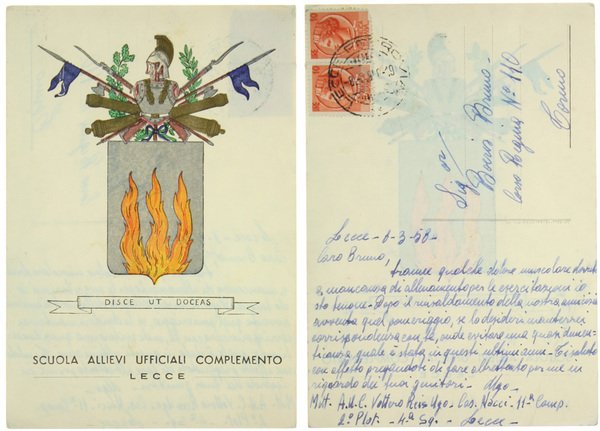 DISCE UT DOCEAS
SCUOLA ALLIEVI UFFICIALI COMPLEMENTO
LECCE
LECCE
Sig or
Boeris Bruno
Corso Regina Nº 110
Torino
Lecce - 8-3-58 -
Caro Bruno,
tranne qualche dolore muscolare dovuto
a mancanza di allenamento per le esercitazioni io
sto benone - Dopo il rinsaldamento della nostra amicizia
avvenuta quel pomeriggio, se lo desideri manterrei
corrispondenza con te, onde evitare una quasi dimen-
ticanza quale è stata in questi ultimi anni - Ti saluto
con affetto pregandoti di fare altrettanto per me in
riguardo dei tuoi genitori - Ugo -
Mitt. A.U.C. Vottero Ugo - Cas. Nacci - 11ª Comp.
2º Plot. - 4ª Sq. - Lecce -